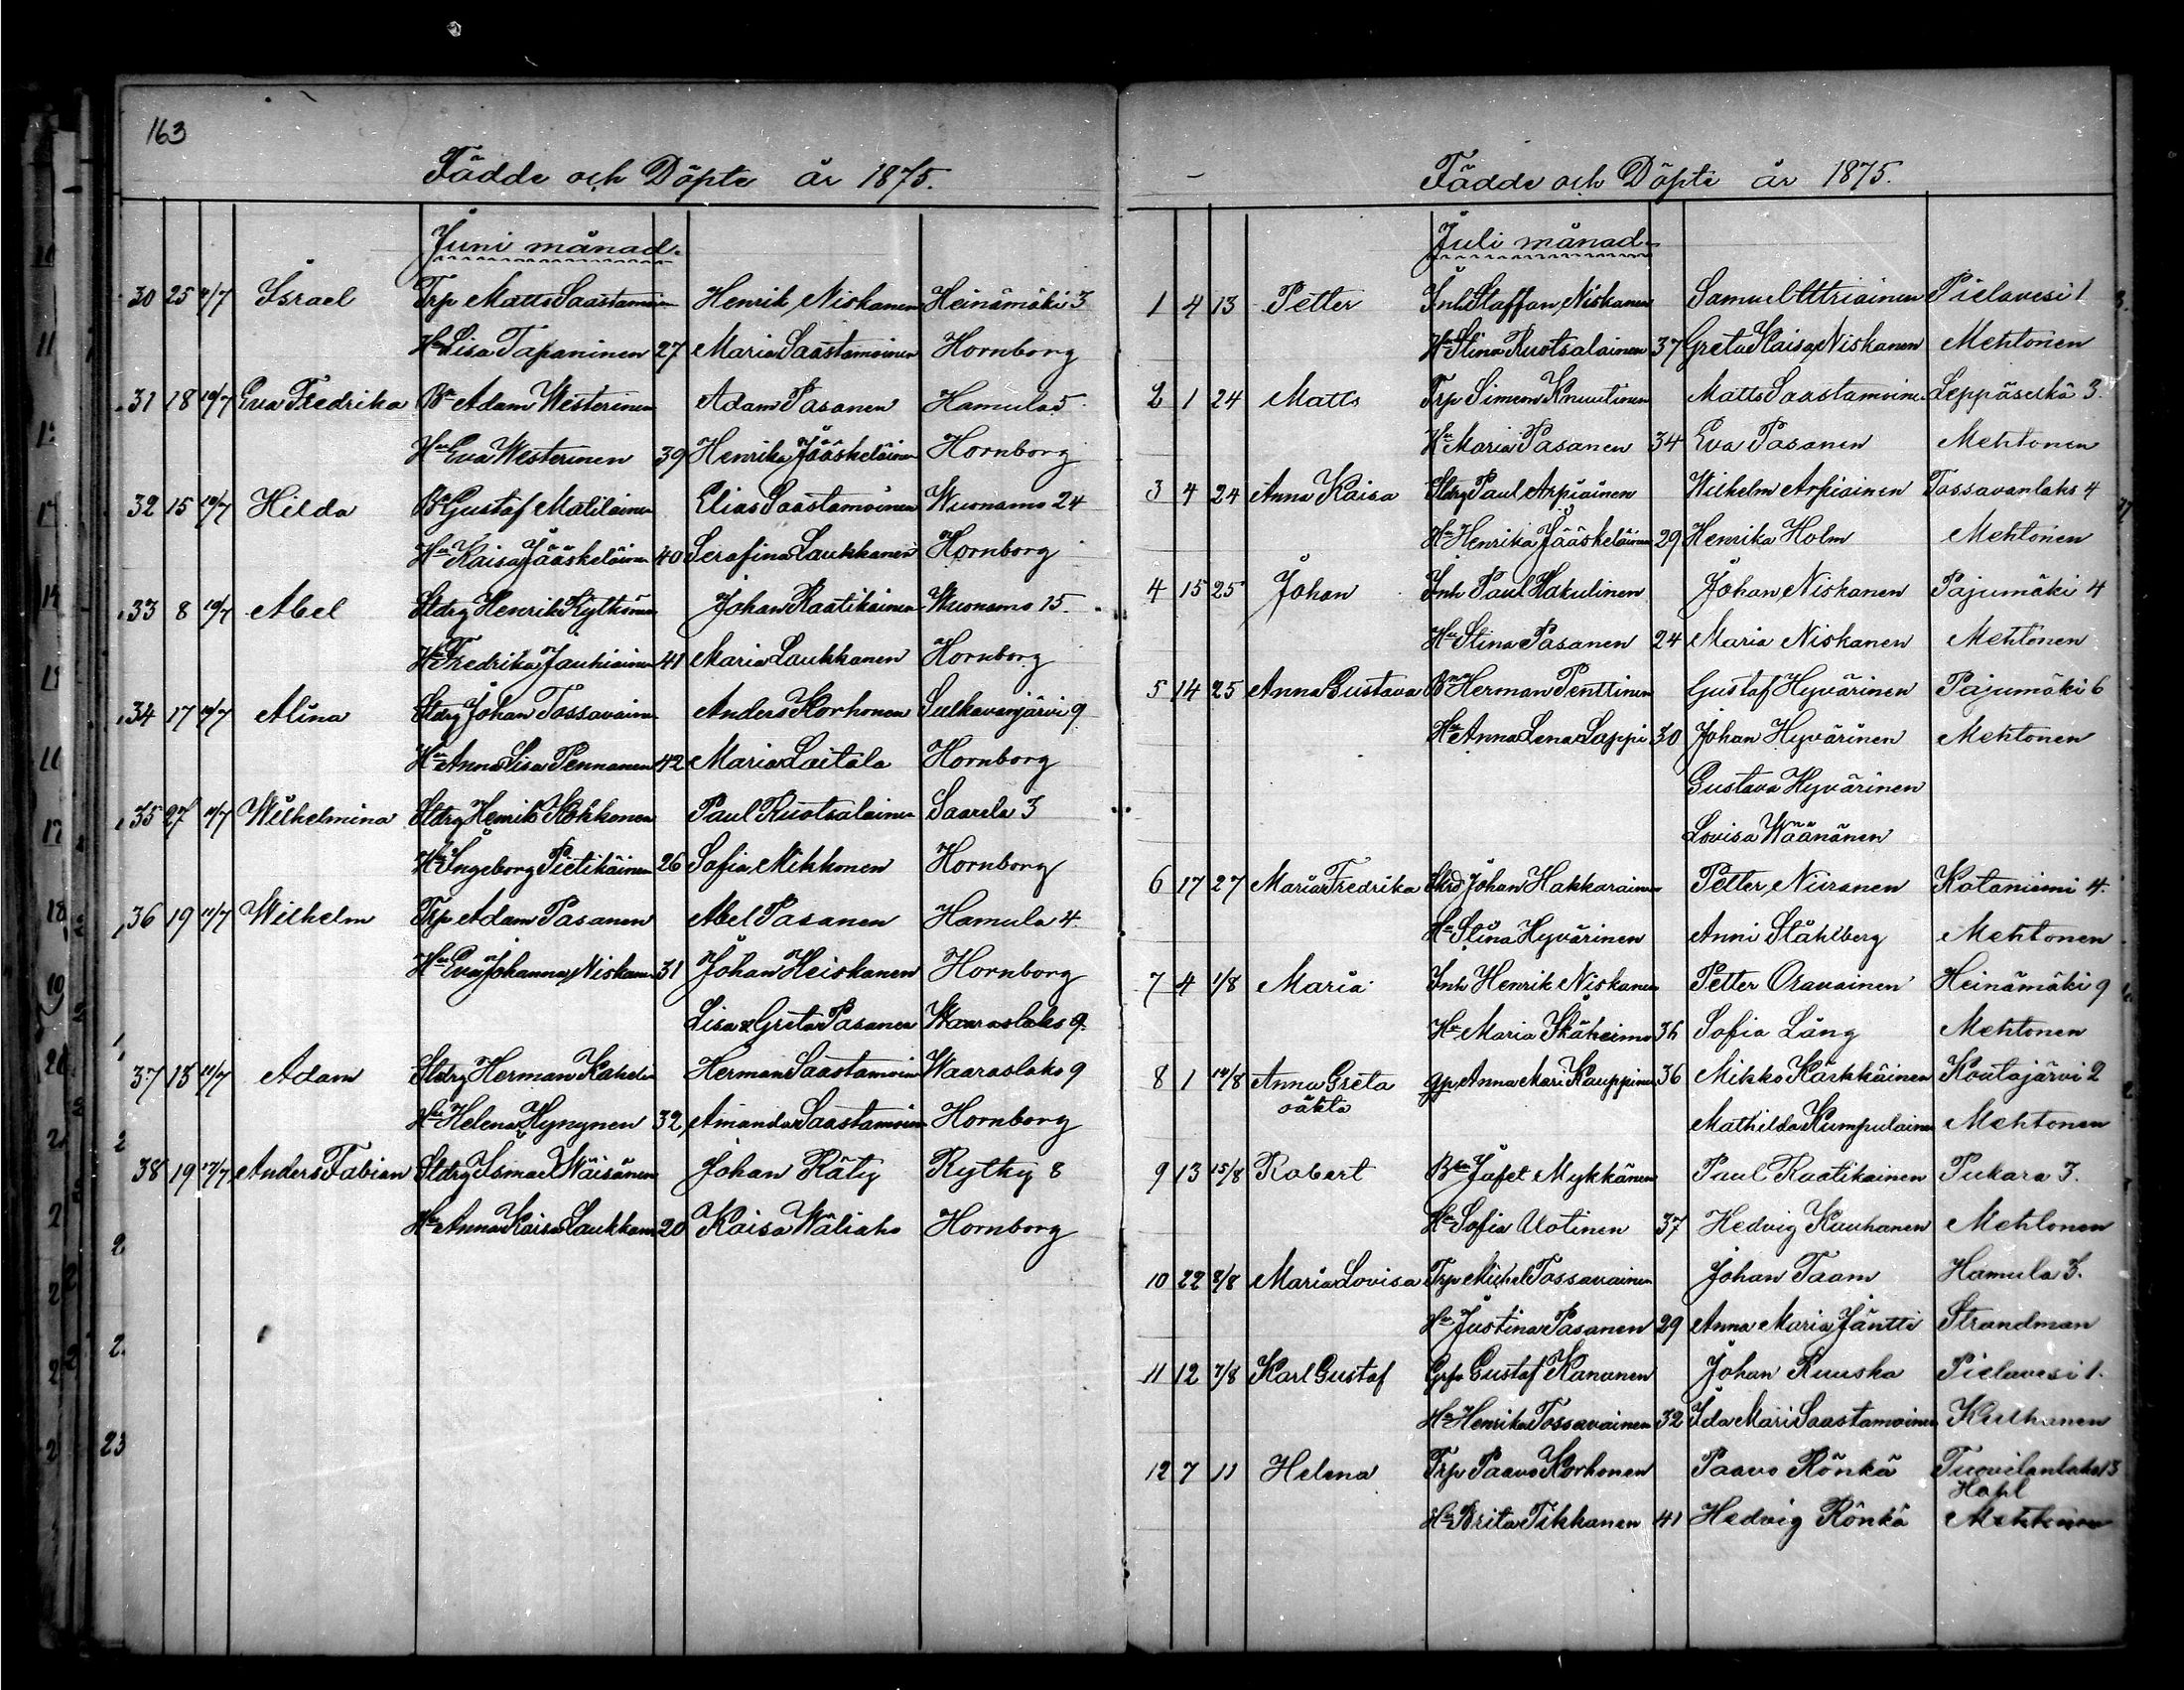 163
Födde och Döpte år 1875.
Juni månad.
30 25 4/7 Israel Trp Matts Saastamoin Henrik Niskanen Heinämäki 3
Hu Lisa Tapaninen 27 Maria Saastamoinen Hornborg
31 18 10/7 Eva Fredrika Bn Adam Westerinen Adam Pasanen Hamula 5
Hu Eva Westerinen 39 Henrika Jääskeläinen Hornborg
32 15 10/7 Hilda Bn Gustaf Matilainen Elias Saastamoinen Wuonamo 24
Hu Kaisa Jääskeläinen 40 Serafina Laukkanen Hornborg
33 8 10/7 Abel Stdrg Henrik Kytkönen Johan Raatikainen Wuonamo 15.
Hu Fredrika Jauhiainen 41 Maria Laukkanen Hornborg
34 17 10/7 Alina Stdrg Johan Tossavainen Anders Korhonen Sulkavanjärvi 9
Hu Anna Lisa Pennanen 42 Maria Laitala Hornborg
35 27 11/7 Wilhelmina Stdrg Henrik Kokkonen Paul Ruotsalainen Saarela 3
Hu Ingeborg Pietikäinen 26 Sofia Mikkonen Hornborg
36 19 11/7 Wilhelm Trp Adam Pasanen Abel Pasanen Hamula 4.
Hu Eva Johanna Niskanen 31 Johan Heiskanen Hornborg
Lisa & Greta Pasanen Waaraslaks 9.
37 13 11/7 Adam Stdrg Herman Kahelin Herman Saastamoin Waaraslaks 9
Hu Helena Hynynen 32 Amanda Saastamoin Hornborg
38 19 17/7 Anders Fabian Stdrg Ismael Wäisänen Johan Räty Rytky 8
Hu Anna Kaisa Laukkanen 20 Kaisa Wäliaho Hornborg
Födde och Döpte år 1875.
Juli månad.
1 4 13 Petter Inh Staffan Niskanen Samuel Uttriainen Pielavesi 1
Hu Stina Ruotsalainen 37 Greta Kaisa Niskanen Mehtonen
2 1 24 Matts Trp Simon Knuutinen Matts Saastamoine Leppäselkä 3.
Hu Maria Pasanen 34 Eva Pasanen Mehtonen
3 4 24 Anna Kaisa Stdrg Paul Arpiainen Wilhelm Arpiainen Tossavanlaks 4
Hu Henrika Jääskeläinen 29 Henrika Holm Mehtonen
4 15 25 Johan Inh Paul Hakulinen Johan Niskanen Pajumäki 4
Hu Stina Pasanen 24 Maria Niskanen Mehtonen
5 14 25 Anna Gustava Bn Herman Penttinen Gustaf Hyvärinen Pajumäki 6
Hu Anna Lena Lappi 30 Johan Hyvärinen Mehtonen
Gustava Hyvärinen
Lovisa Wäänänen
6 17 27 Maria Fredrika Skrd Johan Hakkarainen Petter Niiranen Kataniemi 4.
Hu Stina Hyvärinen Anni Ståhlberg Mehtonen
7 4 1/8 Maria Inh Henrik Niskanen Petter Oravainen Heinämäki 9
Hu Maria 36 Sofia Lång Mehtonen
8 1 14/8 Anna Greta gp Anna Mari Kauppinen 36 Mikko Kärkkäinen Koutajärvi 2
oäkta Mathilda Kumpulainen Mehtonen
9 13 15/8 Robert Bn Jafet Mykkänen Paul Raatikainen Pukara 3.
Hu Sofia Uotinen 37 Hedvig Kauhanen Mehtonen
10 22 8/8 Maria Lovisa Trp Michel Tossavainen Johan Taam Hamula 3.
Hu Justina Pasanen 29 Anna Maria Jäntti Strandman
11 12 7/8 Karl Gustaf Gustaf Kananen Johan Ruuska Pielavesi 1.
Hu Henrika Tossavainen 32 Ida Mari Saastamoinen Kulhanen
12 7 11 Helena Trp Paavo Korhonen Paavo Rönkä Tuovilanlaks 13
Hohl
Hu Brita Tikkanen 41 Hedvig Rönkä Mehtonen